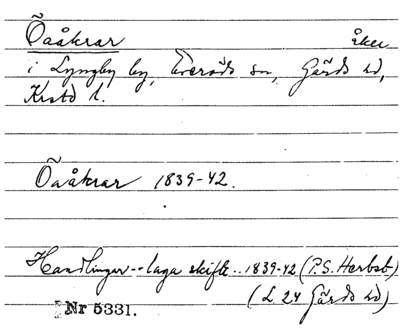 Õaåkrar åker
i Lyngby by, Everöds sn, Gärds hd,
Krstd l.
Õaåkrar 1839-42.
Handlingar -- laga skifte .. 1839-42 (P.S. Herbst)
(L. 24 Gärds hd)
Nr 5331.